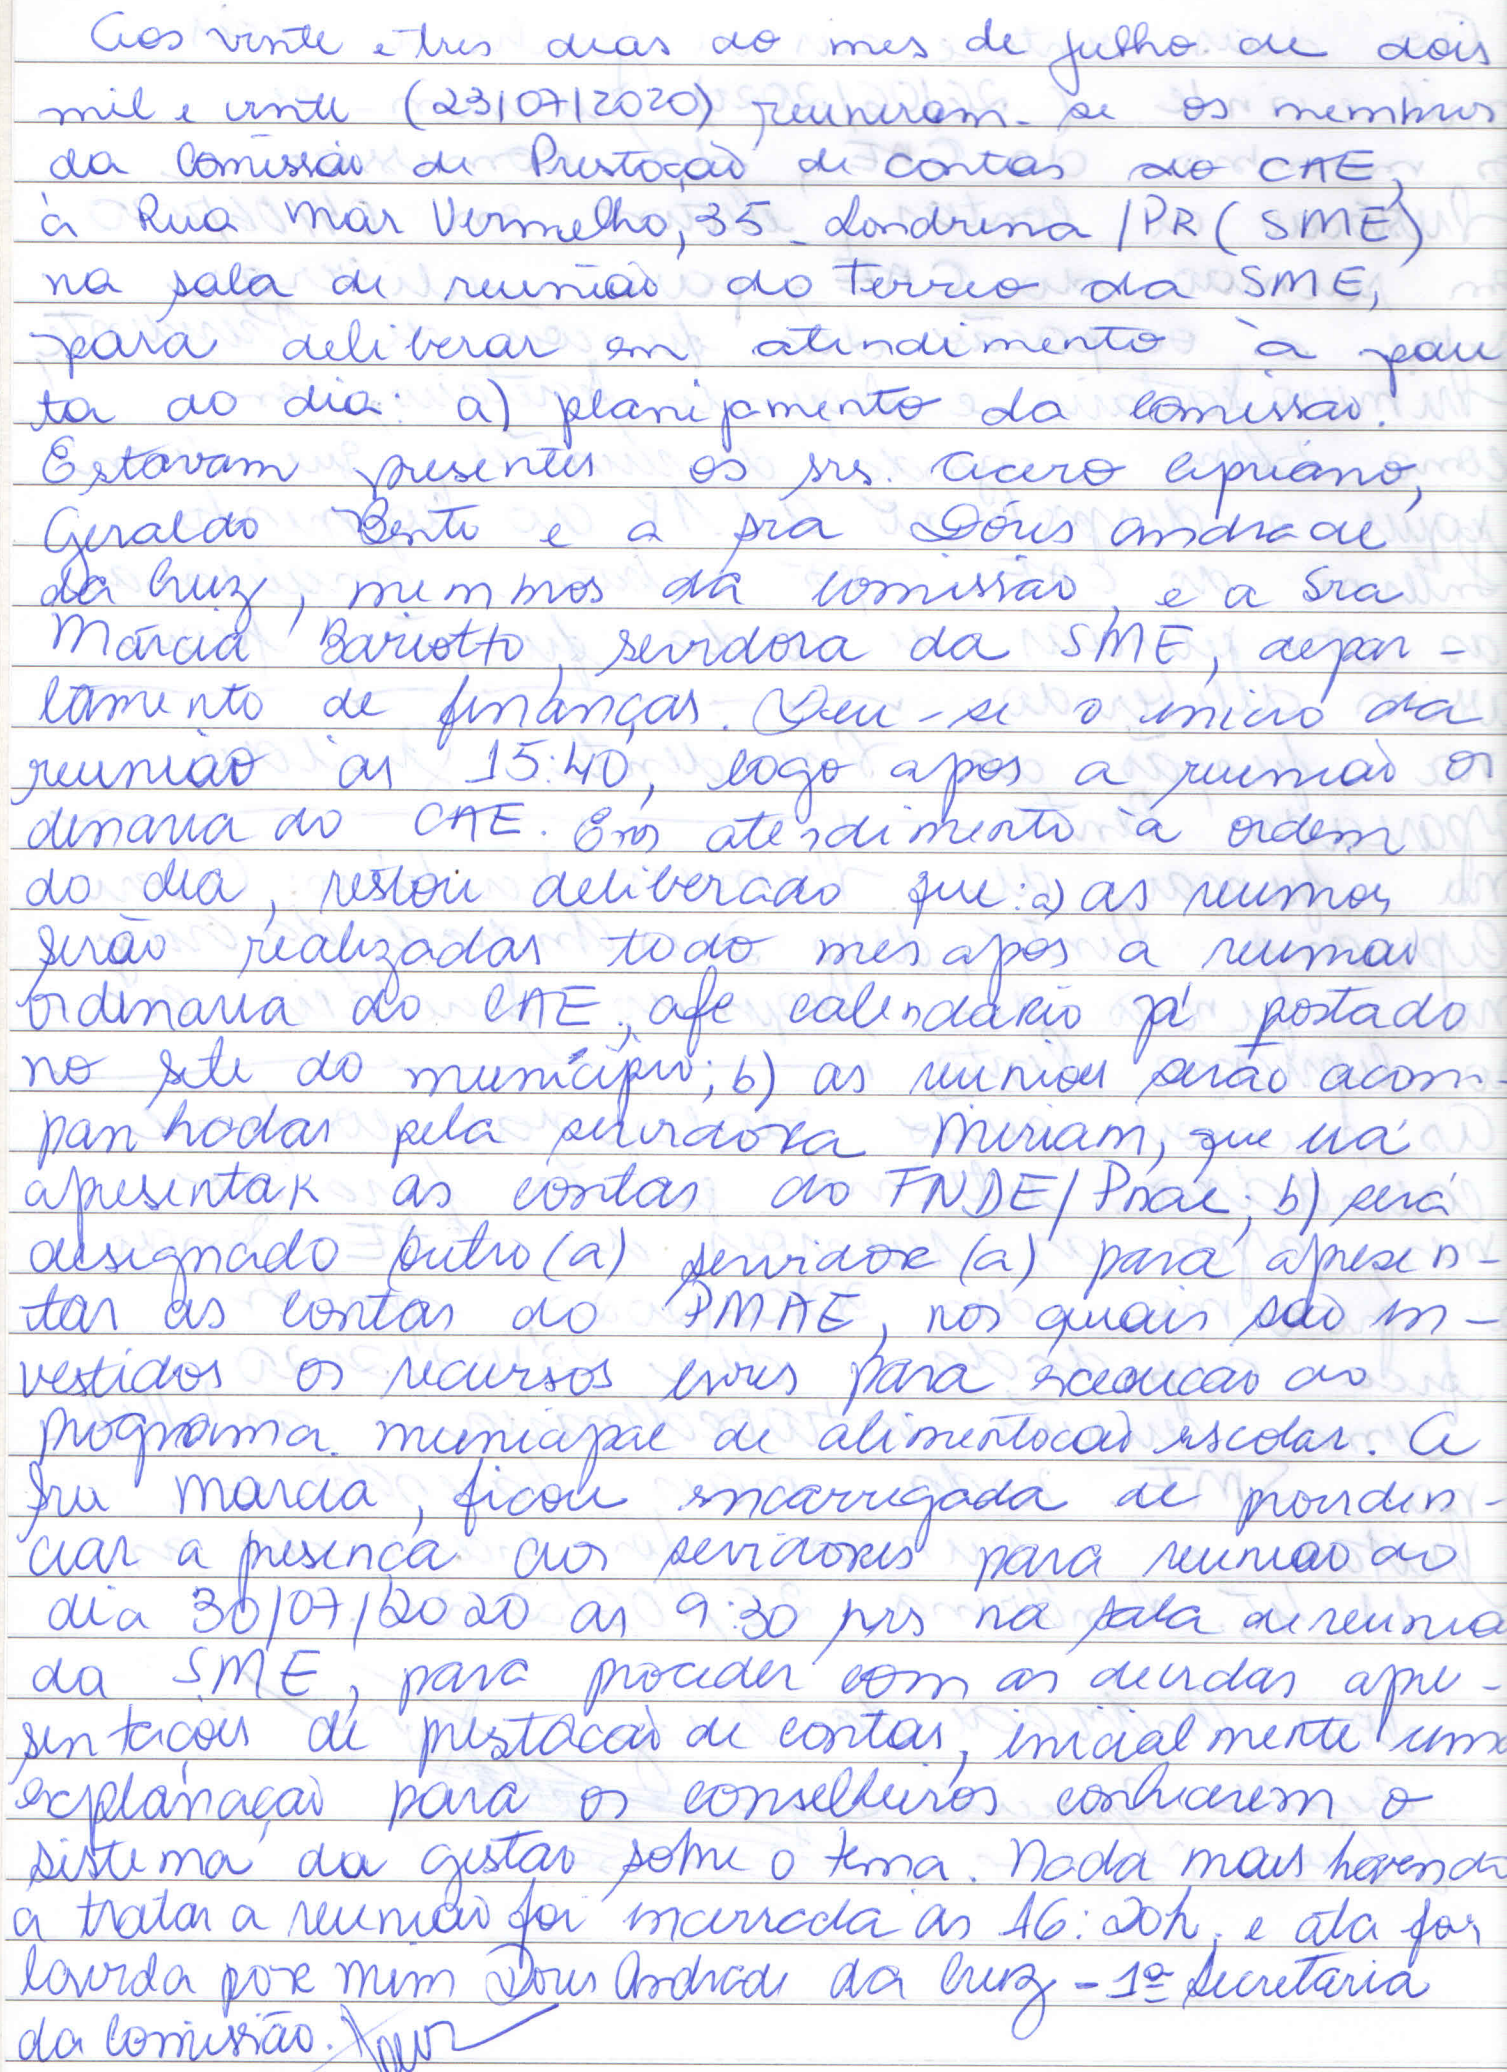 Aos vinte e tres dias do mes de julho de dois
mil e vinte (23/07/2020) reuneram-se os membros
da Comissão de Prestação de contas do CAE,
à Rua Mar Vermelho, 35 - Londrina /PR (SME)
na sala de reunião do Terreo da SME,
para deliberar em atendimento à pau
ta do dia: a) planejamento da Comissão.
Estavam presentes os srs. Cicero Cipriano,
Geraldo Bento e a sra Dóris Andrade
da Cruz, membros da comissão, e a Sra
Márcia Bariotto, servidora da SME, depar-
tamento de finanças. Deu-se o inicio da
reunião às 15:40, logo após a reunião or
dinaria do CAE. Em atendimento à ordem
do dia, restou deliberado que: a) as reunioes
serão realizadas todo mes após a reunião
ordinaria do CAE, cfe calendario já postado
no site do município; b) as reunioes serão acom-
panhadas pela servidora Miriam, que irá
apresentar as contas do FNDE/Pnae; b) será
designado outro(a) servidor(a) para apresen-
tar as contas do PMAE, nos quais são in-
vestidos os recursos livres para execucão do
programa municipal de alimentacão escolar. A
sra Marcia, ficou encarregada de providen-
ciar a presença dos servidores para reuniao do
dia 30/07/2020 as 9:30 hrs na sala de reunia
da SME, para proceder com as devidas apre-
sentações de prestacão de contas, inicialmente uma
explanação para os conselheiros conhecerem o
sistema da gestão sobre o tema. Nada mais havendo
a tratar a reunião foi encerrada às 16:20h, e ata foi
lavrda por mim Doris Andrade da Cruz - 1ª Secretaria
da Comissão.